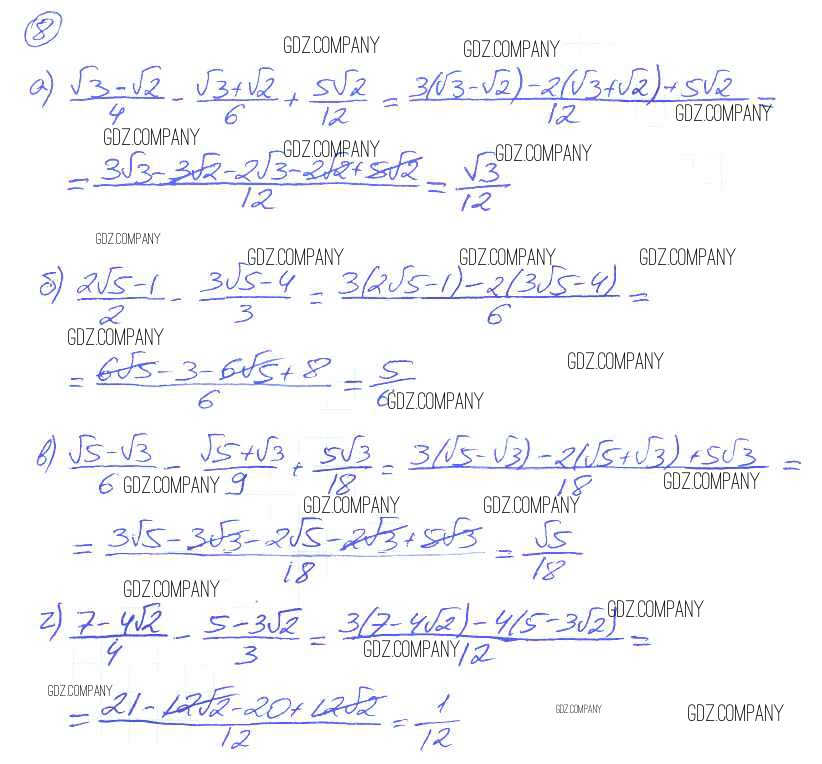 8
GDZ.COMPANY GDZ.COMPANY
а) (√3-√2)/4 - (√3+√2)/6 + 5√2/12 = (3(√3-√2)-2(√3+√2)+5√2)/12 =
GDZ.COMPANY
GDZ.COMPANY GDZ.COMPANY GDZ.COMPANY
= (3√3-3√2-2√3-2√2+5√2)/12 = √3/12
GDZ.COMPANY GDZ.COMPANY GDZ.COMPANY GDZ.COMPANY
б) (2√5-1)/2 - (3√5-4)/3 = (3(2√5-1)-2(3√5-4))/6 =
GDZ.COMPANY GDZ.COMPANY
= (6√5-3-6√5+8)/6 = 5/6
GDZ.COMPANY
в) (√5-√3)/6 - (√5+√3)/9 + 5√3/18 = (3(√5-√3)-2(√5+√3)+5√3)/18 =
GDZ.COMPANY GDZ.COMPANY
GDZ.COMPANY GDZ.COMPANY
= (3√5-3√3-2√5-2√3+5√3)/18 = √5/18
GDZ.COMPANY GDZ.COMPANY
г) (7-4√2)/4 - (5-3√2)/3 = (3(7-4√2)-4(5-3√2))/12 =
GDZ.COMPANY
GDZ.COMPANY GDZ.COMPANY GDZ.COMPANY
= (21-12√2-20+12√2)/12 = 1/12